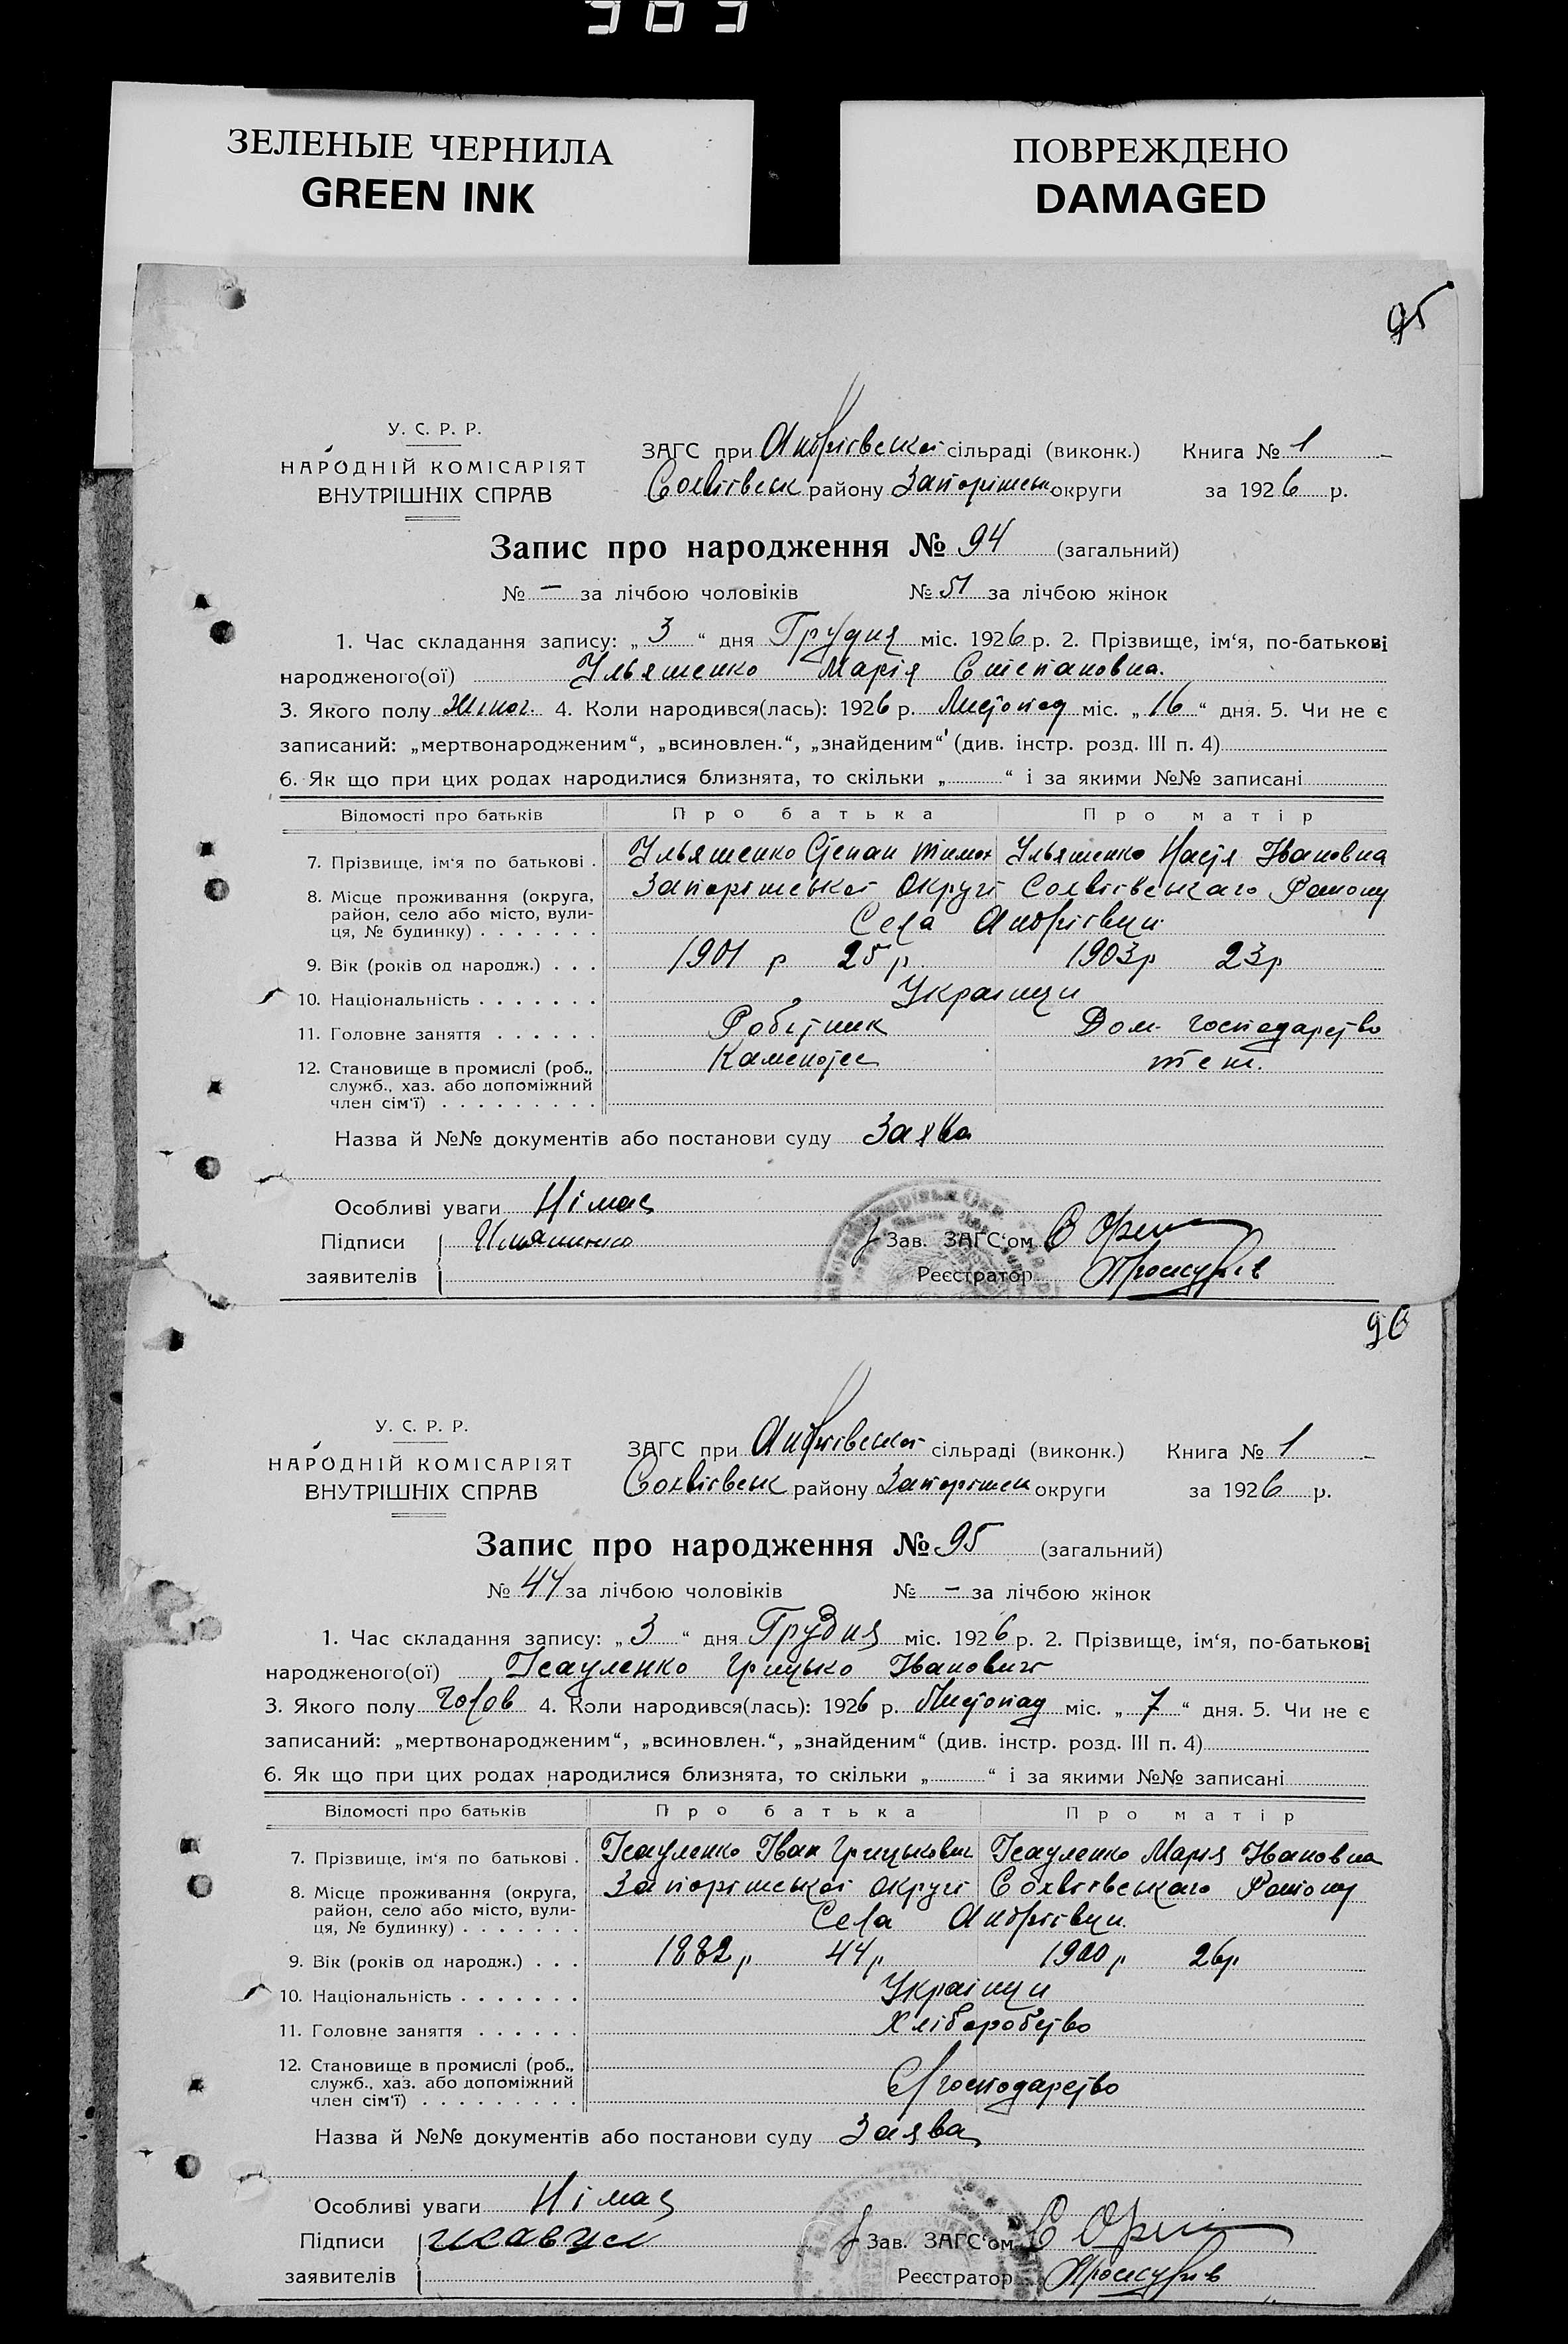 ЗЕЛЕНЫЕ ЧЕРНИЛА
GREEN INK
ПОВРЕЖДЕНО
DAMAGED
95
У. С. Р. Р.
НАРОДНІЙ КОМІСАРІЯТ
ВНУТРІШНІХ СПРАВ
ЗАГС при Андріївської сільраді (виконк.) Книга № 1
району Запоріжськ округи за 1926 р.
Запис про народження № 94 (загальний)
№ – за лічбою чоловіків № 51 за лічбою жінок
1. Час складання запису: „3“ дня Грудня міс. 1926 р. 2. Прізвище, ім‘я, по-батькові
народженого(ої) Ільяшенко Марія Степановна.
3. Якого полу Жіноч. 4. Коли народився(лась): 1926 р. Листопад міс. „16“ дня. 5. Чи не є
записаний: „мертвонародженим“, „всиновлен.“, „знайденим“ (див. інстр. розд. III п. 4)
6. Як що при цих родах народилися близнята, то скільки „ “ і за якими №№ записані
Відомості про батьків Про батька Про матір
7. Прізвище, ім‘я по батькові . Ільяшенко Степан Тимох Ільяшенко Настя Івановна
8. Місце проживання (округа, район, село або місто, вули-ця, № будинку) Запоріжської Округі Району
Села Андріївци
9. Вік (років од народж.) . . . 1901 р 25 р 1903р 23р
10. Національність Українци
11. Головне заняття Робітник Дом. господарство
12. Становище в промислі (роб., Каменотес теж.
служб., хаз. або допоміжний
член сім‘ї)
Назва й №№ документів або постанови суду Заява
Особливі уваги Німає
Підписи Зав. ЗАГС‘ом
заявителів Реєстратор
96
У. С. Р. Р.
НАРОДНІЙ КОМІСАРІЯТ
ВНУТРІШНІХ СПРАВ
ЗАГС при Андріївської сільраді (виконк.) Книга № 1
району Запоріжськ округи за 1926 р.
Запис про народження № 95 (загальний)
№ 44 за лічбою чоловіків № – за лічбою жінок
1. Час складання запису: „3“ дня Грудня міс. 1926 р. 2. Прізвище, ім‘я, по-батькові
народженого(ої) Ісауленко Грицько Іванович
3. Якого полу Чолов 4. Коли народився(лась): 1926 р. Листопад міс. „7“ дня. 5. Чи не є
записаний: „мертвонародженим“, „всиновлен.“, „знайденим“ (див. інстр. розд. III п. 4)
6. Як що при цих родах народилися близнята, то скільки „ “ і за якими №№ записані
Відомості про батьків Про батька Про матір
7. Прізвище, ім‘я по батькові . Ісауленко Іван Грицькович Ісауленко Марія Івановна
8. Місце проживання (округа, район, село або місто, вули-ця, № будинку) Запоріжської округі Району
Села Андріївци.
9. Вік (років од народж.) . . . 1882р 44р 1900р 26р
10. Національність Українци
11. Головне заняття Хліборобство
12. Становище в промислі (роб.,
служб., хаз. або допоміжний господарство
член сім‘ї)
Назва й №№ документів або постанови суду Заява
Особливі уваги Німає
Підписи Зав. ЗАГС‘ом
заявителів Реєстратор